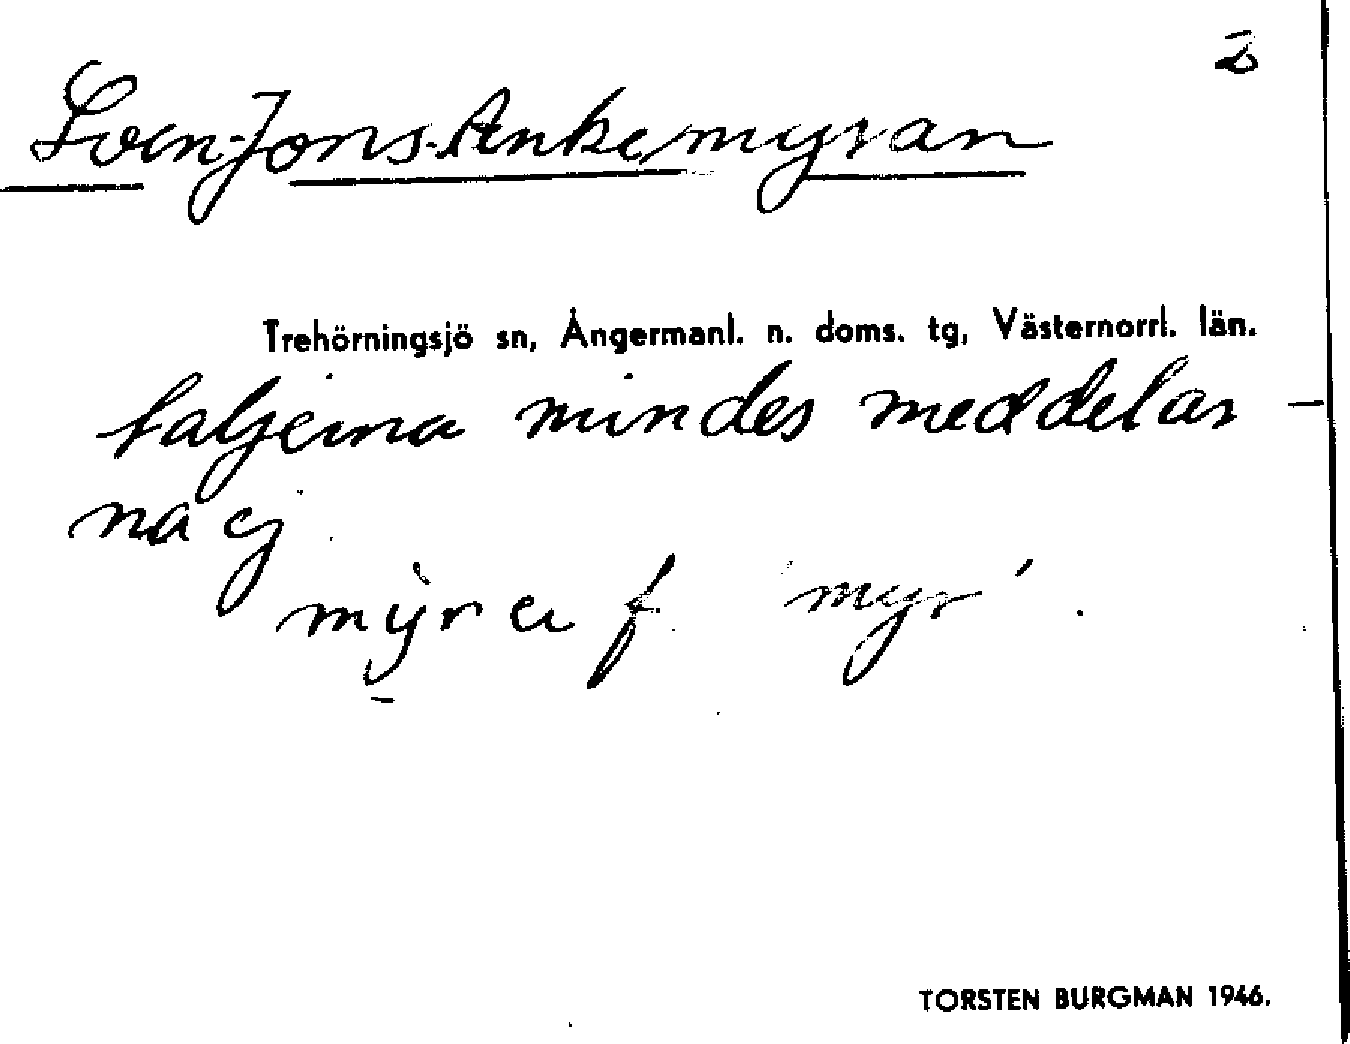 2
Sven-Jons-Ankemyran
Trehörningsjö sn, Ångermanl. n. doms. tg, Västernorrl. län.
taljerna mindes meddelar-
na ej
myra f. 'myr'.
TORSTEN BURGMAN 1946.